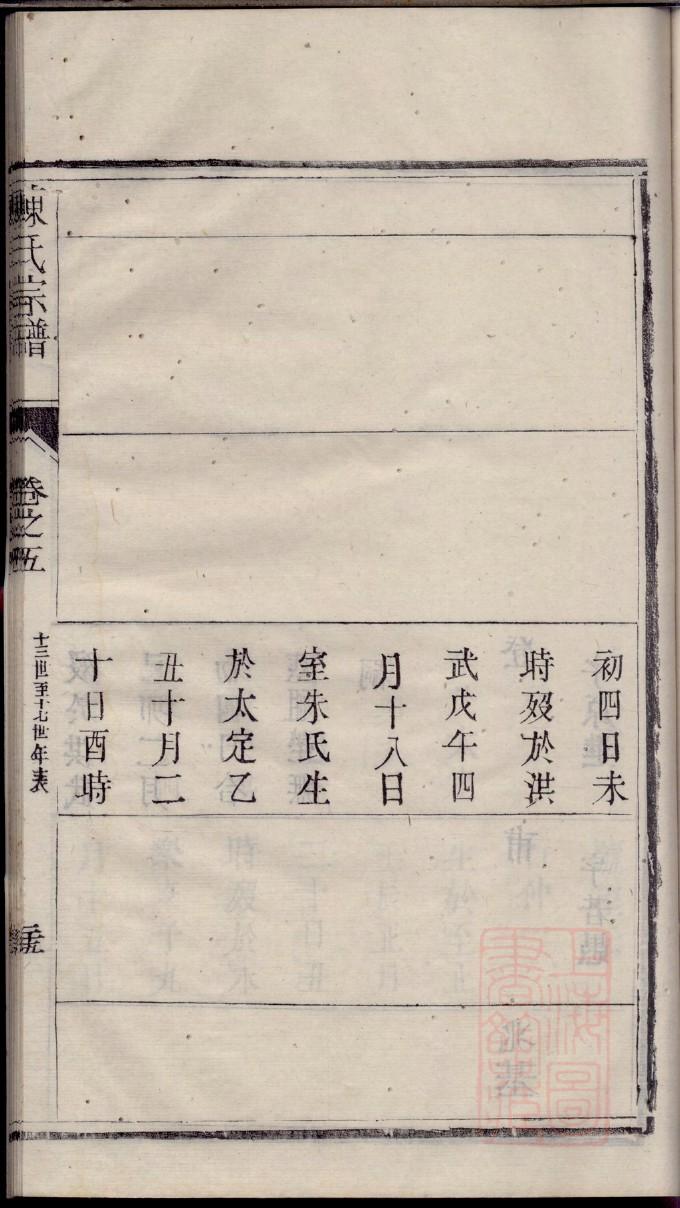 初四日未
時歿於洪
武戊午四
月十八日
室朱氏生
於太定乙
丑十月二
十日酉時
陳氏宗譜
卷之五
十三世至十七世年表
上海圖書館藏